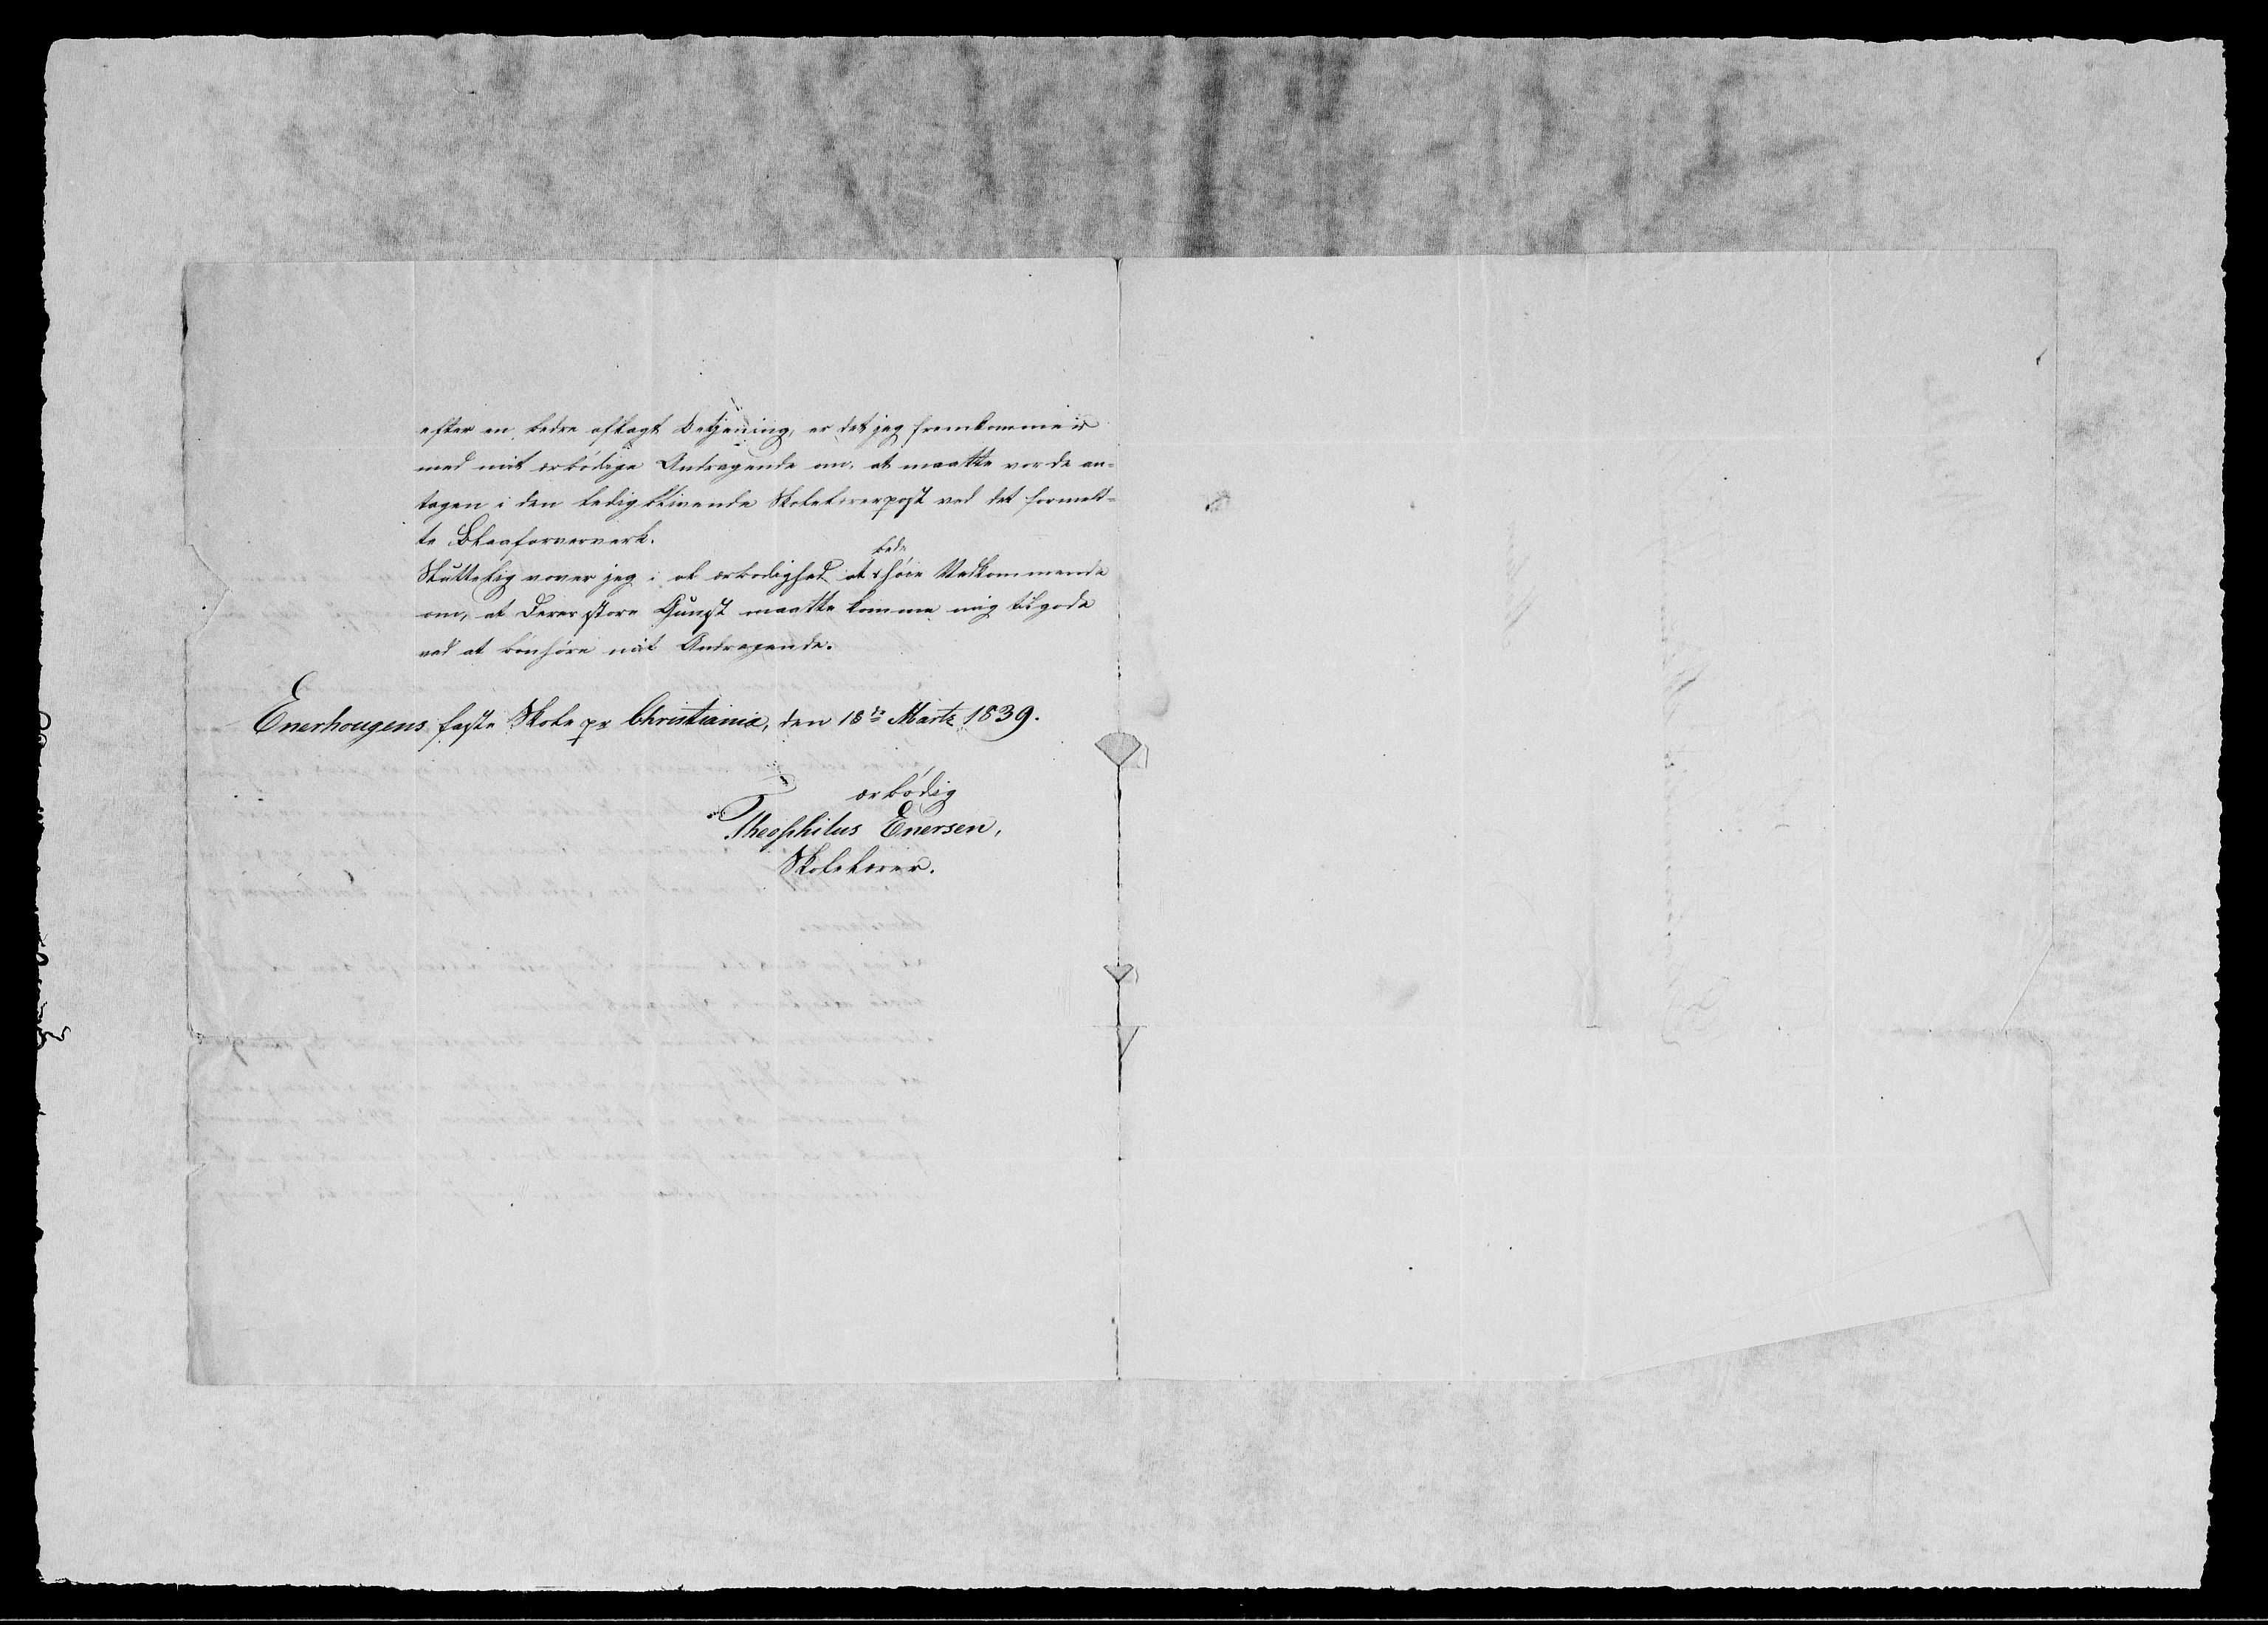 efter en bedre aflagt Betjening, er det jeg fremkommer
med mit ærbödige Andragende om, at maatte vorde an=
tagen i den ledigblivende Skolelærerpost ved det formeld=
te Blaafarveverk.
Sluttelig vover jeg i al ærbödighed at bede höie Vedkommende
om, at Deres store Gunst maatte komme mig tilgode
ved at bönhöre mit Andragende.
Enerhougens faste Skole pr Christiania, den 18de Martz 1839.
ærbödig
Theophilus Enersen,
Skolelærer.